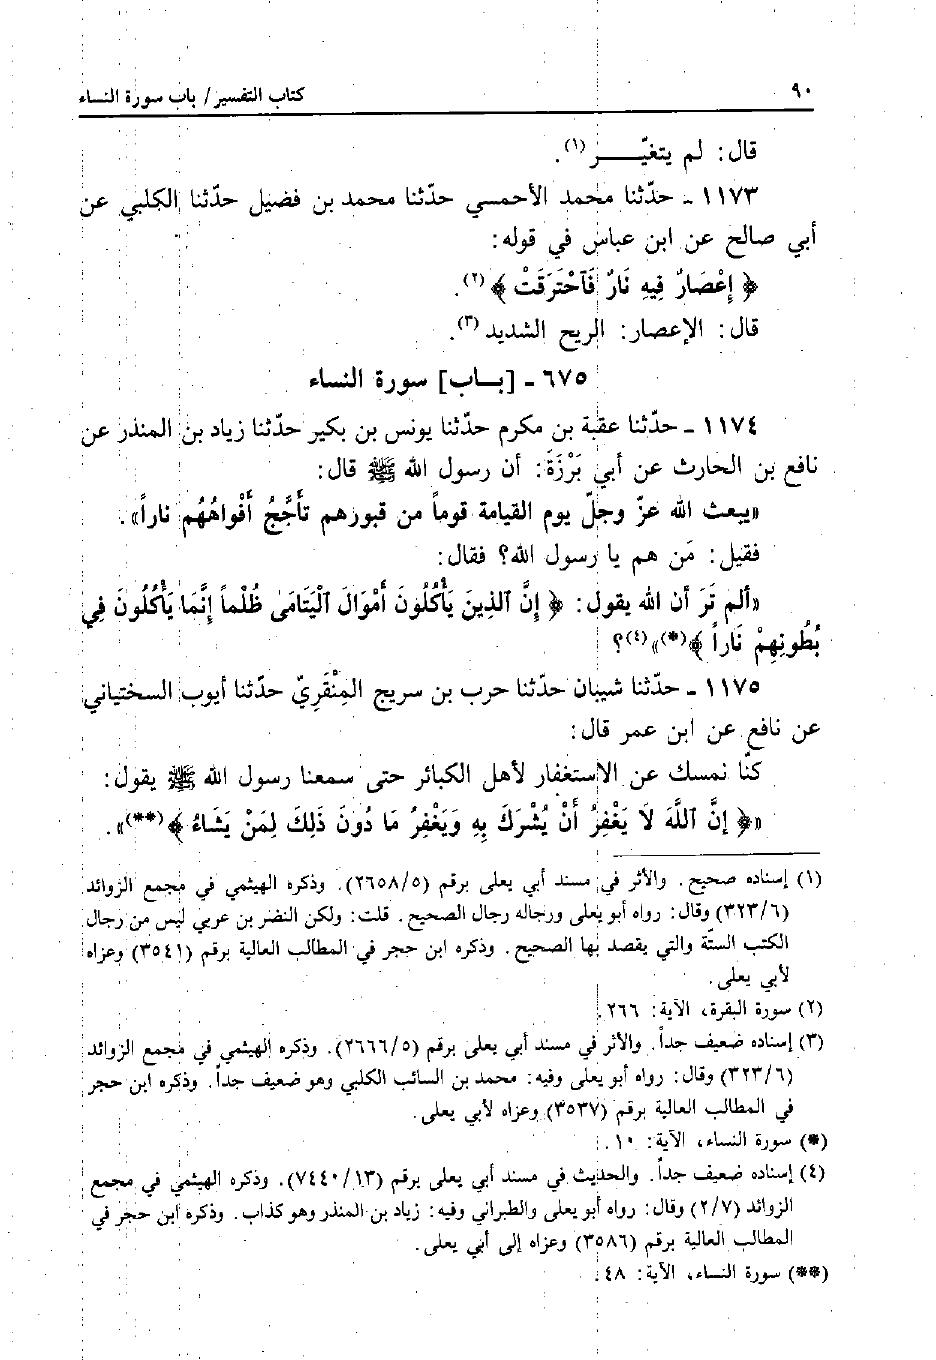 ٩٠
كتاب التفسير/ باب سورة النساء
قال: لم يتغيّـــر(١).
١١٧٣ ـ حدّثنا محمد الأحمسي حدّثنا محمد بن فضيل حدّثنا الكلبي عن
أبي صالح عن ابن عباس في قوله:
﴿ إِعْصَارٌ فِيهِ نَارٌ فَٱحْتَرَقَتْ ﴾(٢).
قال: الإعصار: الريح الشديد(٣).
٦٧٥ ـ [بــاب] سورة النساء
١١٧٤ ـ حدّثنا عقبة بن مكرم حدّثنا يونس بن بكير حدّثنا زياد بن المنذر عن
نافع بن الحارث عن أبي بَرْزَةَ: أن رسول الله ﷺ قال:
«يبعث الله عزّ وجلّ يوم القيامة قوماً من قبورهم تأَجَّجُ أَفْواهُهُم ناراً».
فقيل: مَن هم يا رسول الله؟ فقال:
«ألم تَرَ أن الله يقول: ﴿ إِنَّ ٱلذِينَ يَأْكُلُونَ أَمْوَالَ اْليَتَامَى ظُلْماً إِنَّمَا يَأْكُلُونَ فِي
بُطُونِهِمْ نَاراً ﴾(*)»(٤)؟
١١٧٥ ـ حدّثنا شيبان حدّثنا حرب بن سريج المِنْقَرِيّ حدّثنا أيوب السختياني
عن نافع عن ابن عمر قال:
كنّا نمسك عن الاستغفار لأهل الكبائر حتى سمعنا رسول الله ﷺ يقول:
«﴿ إِنَّ ٱللَّهَ لَا يَغْفِرُ أَنْ يُشْرَكَ بِهِ وَيَغْفِرُ مَا دُونَ ذَلِكَ لِمَنْ يَشَاءُ ﴾(**)».
(١) إسناده صحيح. والأثر في مسند أبي يعلى برقم (٢٦٥٨/٥). وذكره الهيثمي في مجمع الزوائد
(٣٢٣/٦) وقال: رواه أبو يعلى ورجاله رجال الصحيح. قلت: ولكن النضر بن عربي ليس من رجال
الكتب الستّة والتي يقصد بها الصحيح. وذكره ابن حجر في المطالب العالية برقم (٣٥٤١) وعزاه
لأبي يعلى.
(٢) سورة البقرة، الآية: ٢٦٦.
(٣) إسناده ضعيف جداً. والأثر في مسند أبي يعلى برقم (٢٦٦٦/٥). وذكره الهيثمي في مجمع الزوائد
(٣٢٣/٦) وقال: رواه أبو يعلى وفيه: محمد بن السائب الكلبي وهو ضعيف جداً. وذكره ابن حجر
في المطالب العالية برقم (٣٥٣٧) وعزاه لأبي يعلى.
(*) سورة النساء، الآية: ١٠.
(٤) إسناده ضعيف جداً. والحديث في مسند أبي يعلى برقم (٧٤٤٠/١٣). وذكره الهيثمي في مجمع
الزوائد (٢/٧) وقال: رواه أبو يعلى والطبراني وفيه: زياد بن المنذر وهو كذاب. وذكره ابن حجر في
المطالب العالية برقم (٣٥٨٦) وعزاه إلى أبي يعلى.
(**) سورة النساء، الآية: ٤٨.